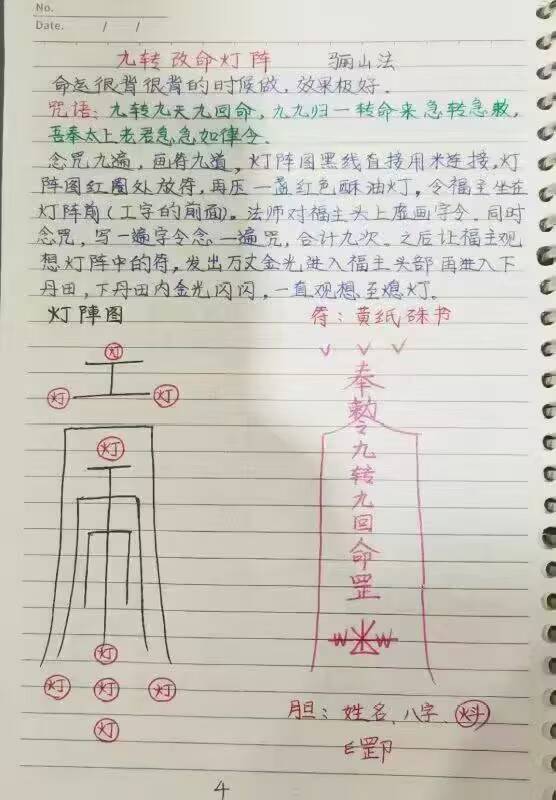 No.
Date. / /
九转改命灯阵 骊山法
命运很背很背的时候做，效果极好．
咒语：九转九天九回命，九九归一转命来急转急救，
吾奉太上老君急急如律令．
念咒九遍，画符九道，灯阵图黑线直接用米连接，灯
阵图红圈处放符，再压一盏红色酥油灯，令福主坐在
灯阵前（工字的前面）。法师对福主头上虚画字令．同时
念咒，写一遍字令念一遍咒，合计九次．之后让福主观
想灯阵中的符，发出万丈金光进入福主头部再进入下
丹田，下丹田内金光闪闪，一直观想至熄灯．
灯陣图 符：黄纸硃书
灯
灯 灯
灯
灯
灯 灯 灯
灯
奉
勅
令
九
转
九
回
命
罡
胆：姓名、八字、
4